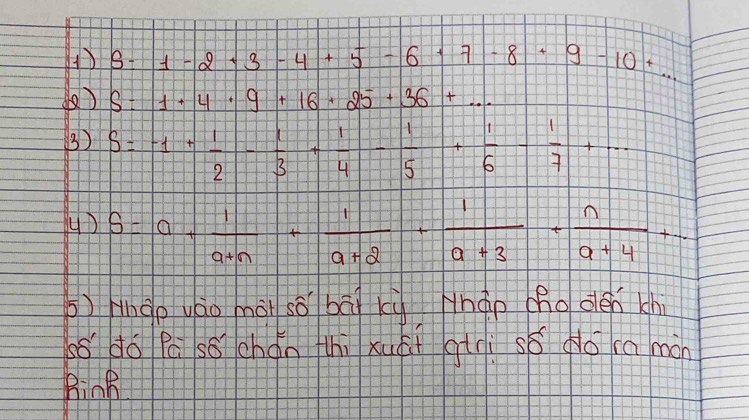 1) S = 1 - 2 + 3 - 4 + 5 - 6 + 7 - 8 + 9 - 10 + ...
2) S = 1 + 4 + 9 + 16 + 25 + 36 + ...
3) S = -1 + 1/2 - 1/3 + 1/4 - 1/5 + 1/6 - 1/7 + ...
4) S = a + 1/(a+n) + 1/(a+2) + 1/(a+3) + n/(a+4) + ...
5) Nhập vào một số bất kỳ. Nhập cho đến khi
số đó là số chẵn thì xuất gtrị số đó ra màn
hình.